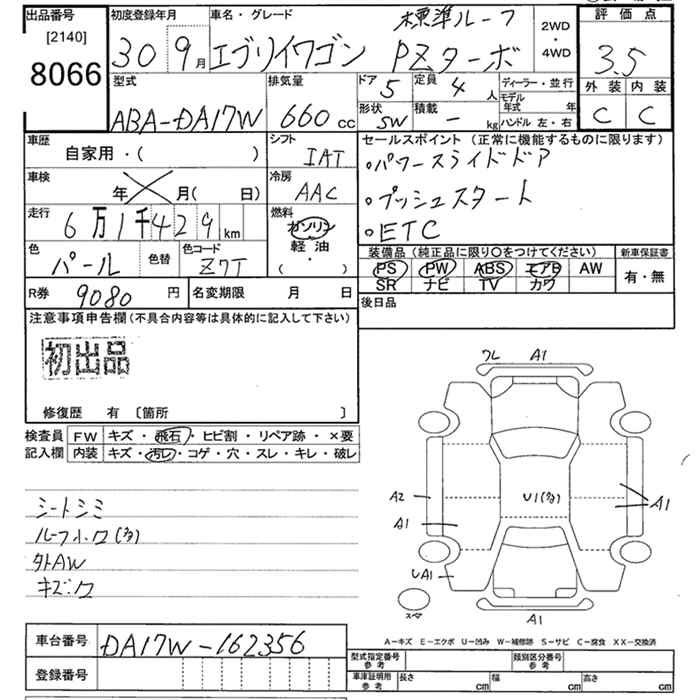 出品番号
[2140]
8066
初度登録年月
30 9月
車名・グレード
標準ルーフ
エブリイワゴン PZターボ
2WD
・
4WD
評価点
3.5
外装 内装
C C
型式
ABA-DA17W
排気量
660 cc
ドア 5
定員 4 人
形状 SW
積載 - kg
ディーラー・並行
モデル年式 年
ハンドル 左・右
車歴
自家用・( )
シフト
IAT
車検
年 月( 日)
冷房
AAC
走行
6万1千429km
燃料
ガソリン
軽油
( ・ )
色
パール
色替
色コード
Z7T
セールスポイント (正常に機能するものに限ります)
・パワースライドドア
・プッシュスタート
・ETC
装備品 (純正品に限り○をつけてください)
新車保証書
PS PW ABS エアB AW
SR ナビ TV カワ
有・無
R券 9080 円
名変期限 月 日
後日品
注意事項申告欄(不具合内容等は具体的に記入して下さい)
初出品
修復歴 有 〔箇所 〕
検査員
記入欄
FW キズ・飛石・ヒビ割・リペア跡・×要
内装 キズ・汚レ・コゲ・穴・スレ・キレ・破レ
シートシミ
外AW
ワレ A1
A2
A1
U1(多)
A1
UA1
A1
スペア
A-キズ E-エクボ U-凹み W-補修跡 S-サビ C-腐食 XX-交換済
車台番号 DA17W-162356
登録番号
型式指定番号
参考
類別区分番号
参考
車庫証明用
参考
長さ cm
幅 cm
高さ cm